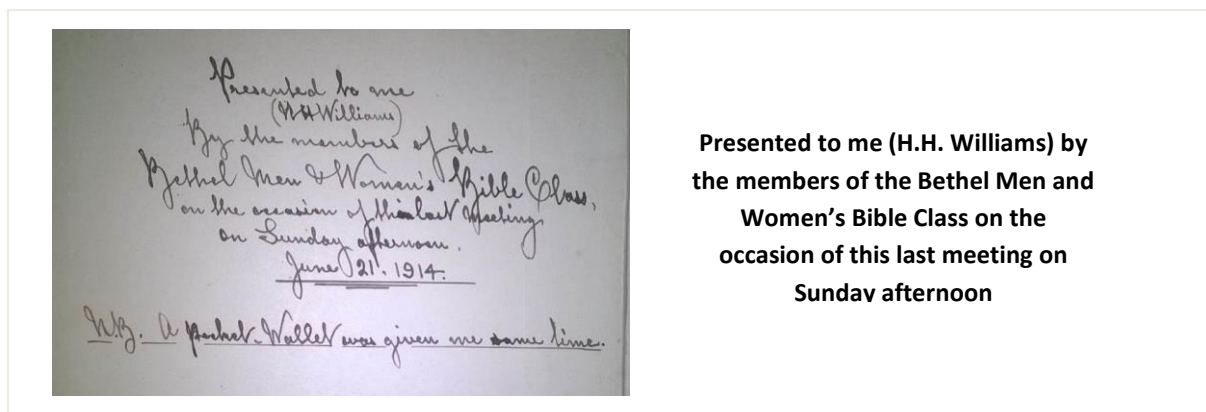 Presented to me
(HH Williams)
By the members of the
Bethel Men & Women's Bible Class,
on the occasion of this last meeting
on Sunday afternoon.
June 21. 1914.
N.B. A pocket-Wallet was given me same time.
Presented to me (H.H. Williams) by
the members of the Bethel Men and
Women’s Bible Class on the
occasion of this last meeting on
Sunday afternoon